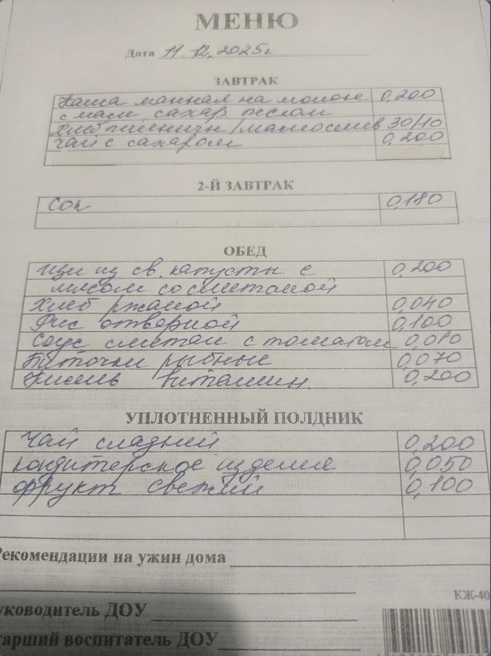 МЕНЮ
Дата 11.12.2025г.
ЗАВТРАК
Каша манная на молоке 0,200
с масл. сахар песком
Хлеб пшеничн/маслослив 30/10
Чай с сахаром 0,200
2-Й ЗАВТРАК
Сок 0,180
ОБЕД
Щи из св. капусты с 0,200
мясом со сметаной
Хлеб ржаной 0,040
Рис отворной 0,100
Соус сметан с томатом 0,080
Биточки рыбные 0,070
Кисель витамин. 0,200
УПЛОТНЕННЫЙ ПОЛДНИК
Чай сладкий 0,200
кондитерское изделия 0,050
фрукт свежий 0,100
Рекомендации на ужин дома
КЖ-40
уководитель ДОУ
тарший воспитатель ДОУ